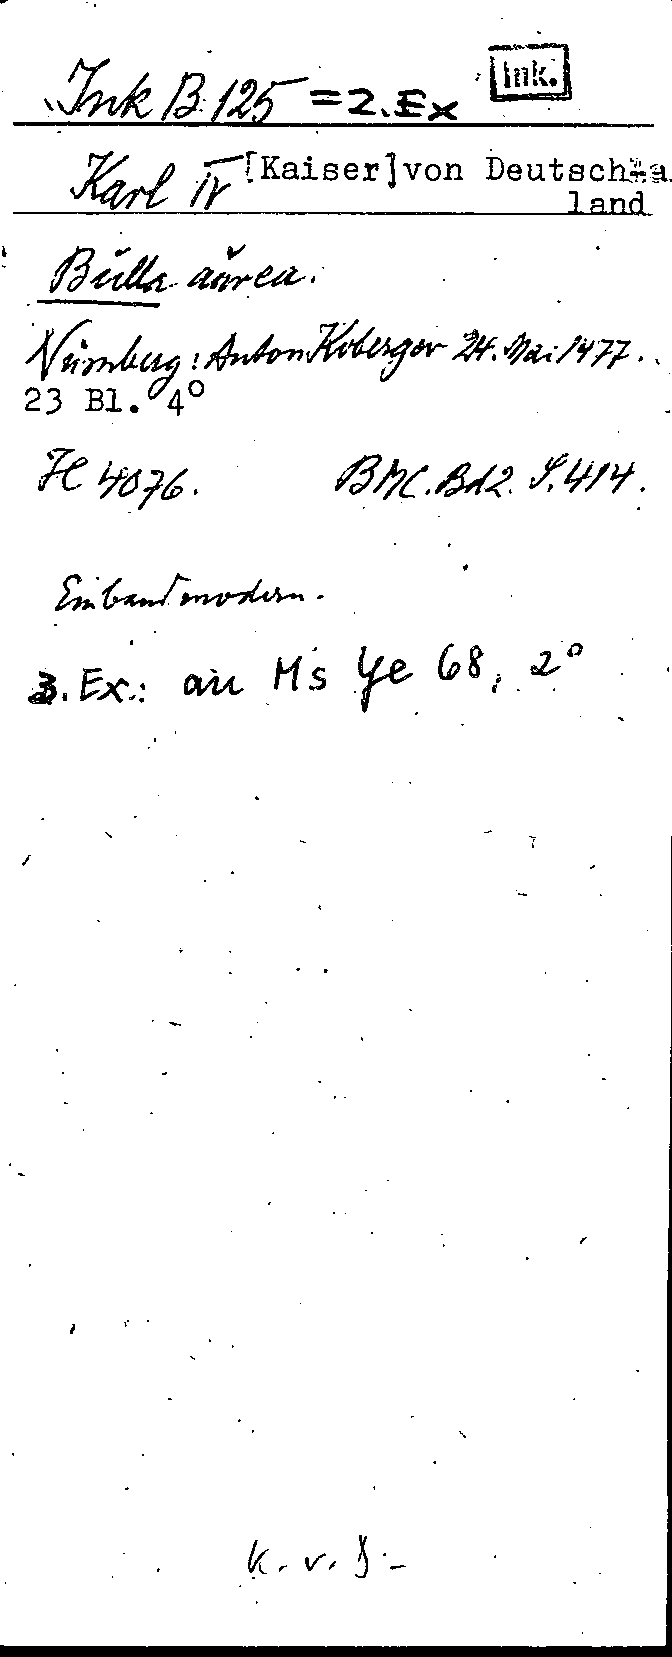 Ink B 125 = 2. Ex Ink.
Karl IV [Kaiser] von Deutsch-
land
Bulla aurea.
Nürnberg: Anton Koberger 24. Mai 1477.
23 Bl. 4°
H 4076. BMC. Bd 2. S. 414.
Einband modern.
3. Ex.: an Ms Ye 68, 2°
K. v. D.-